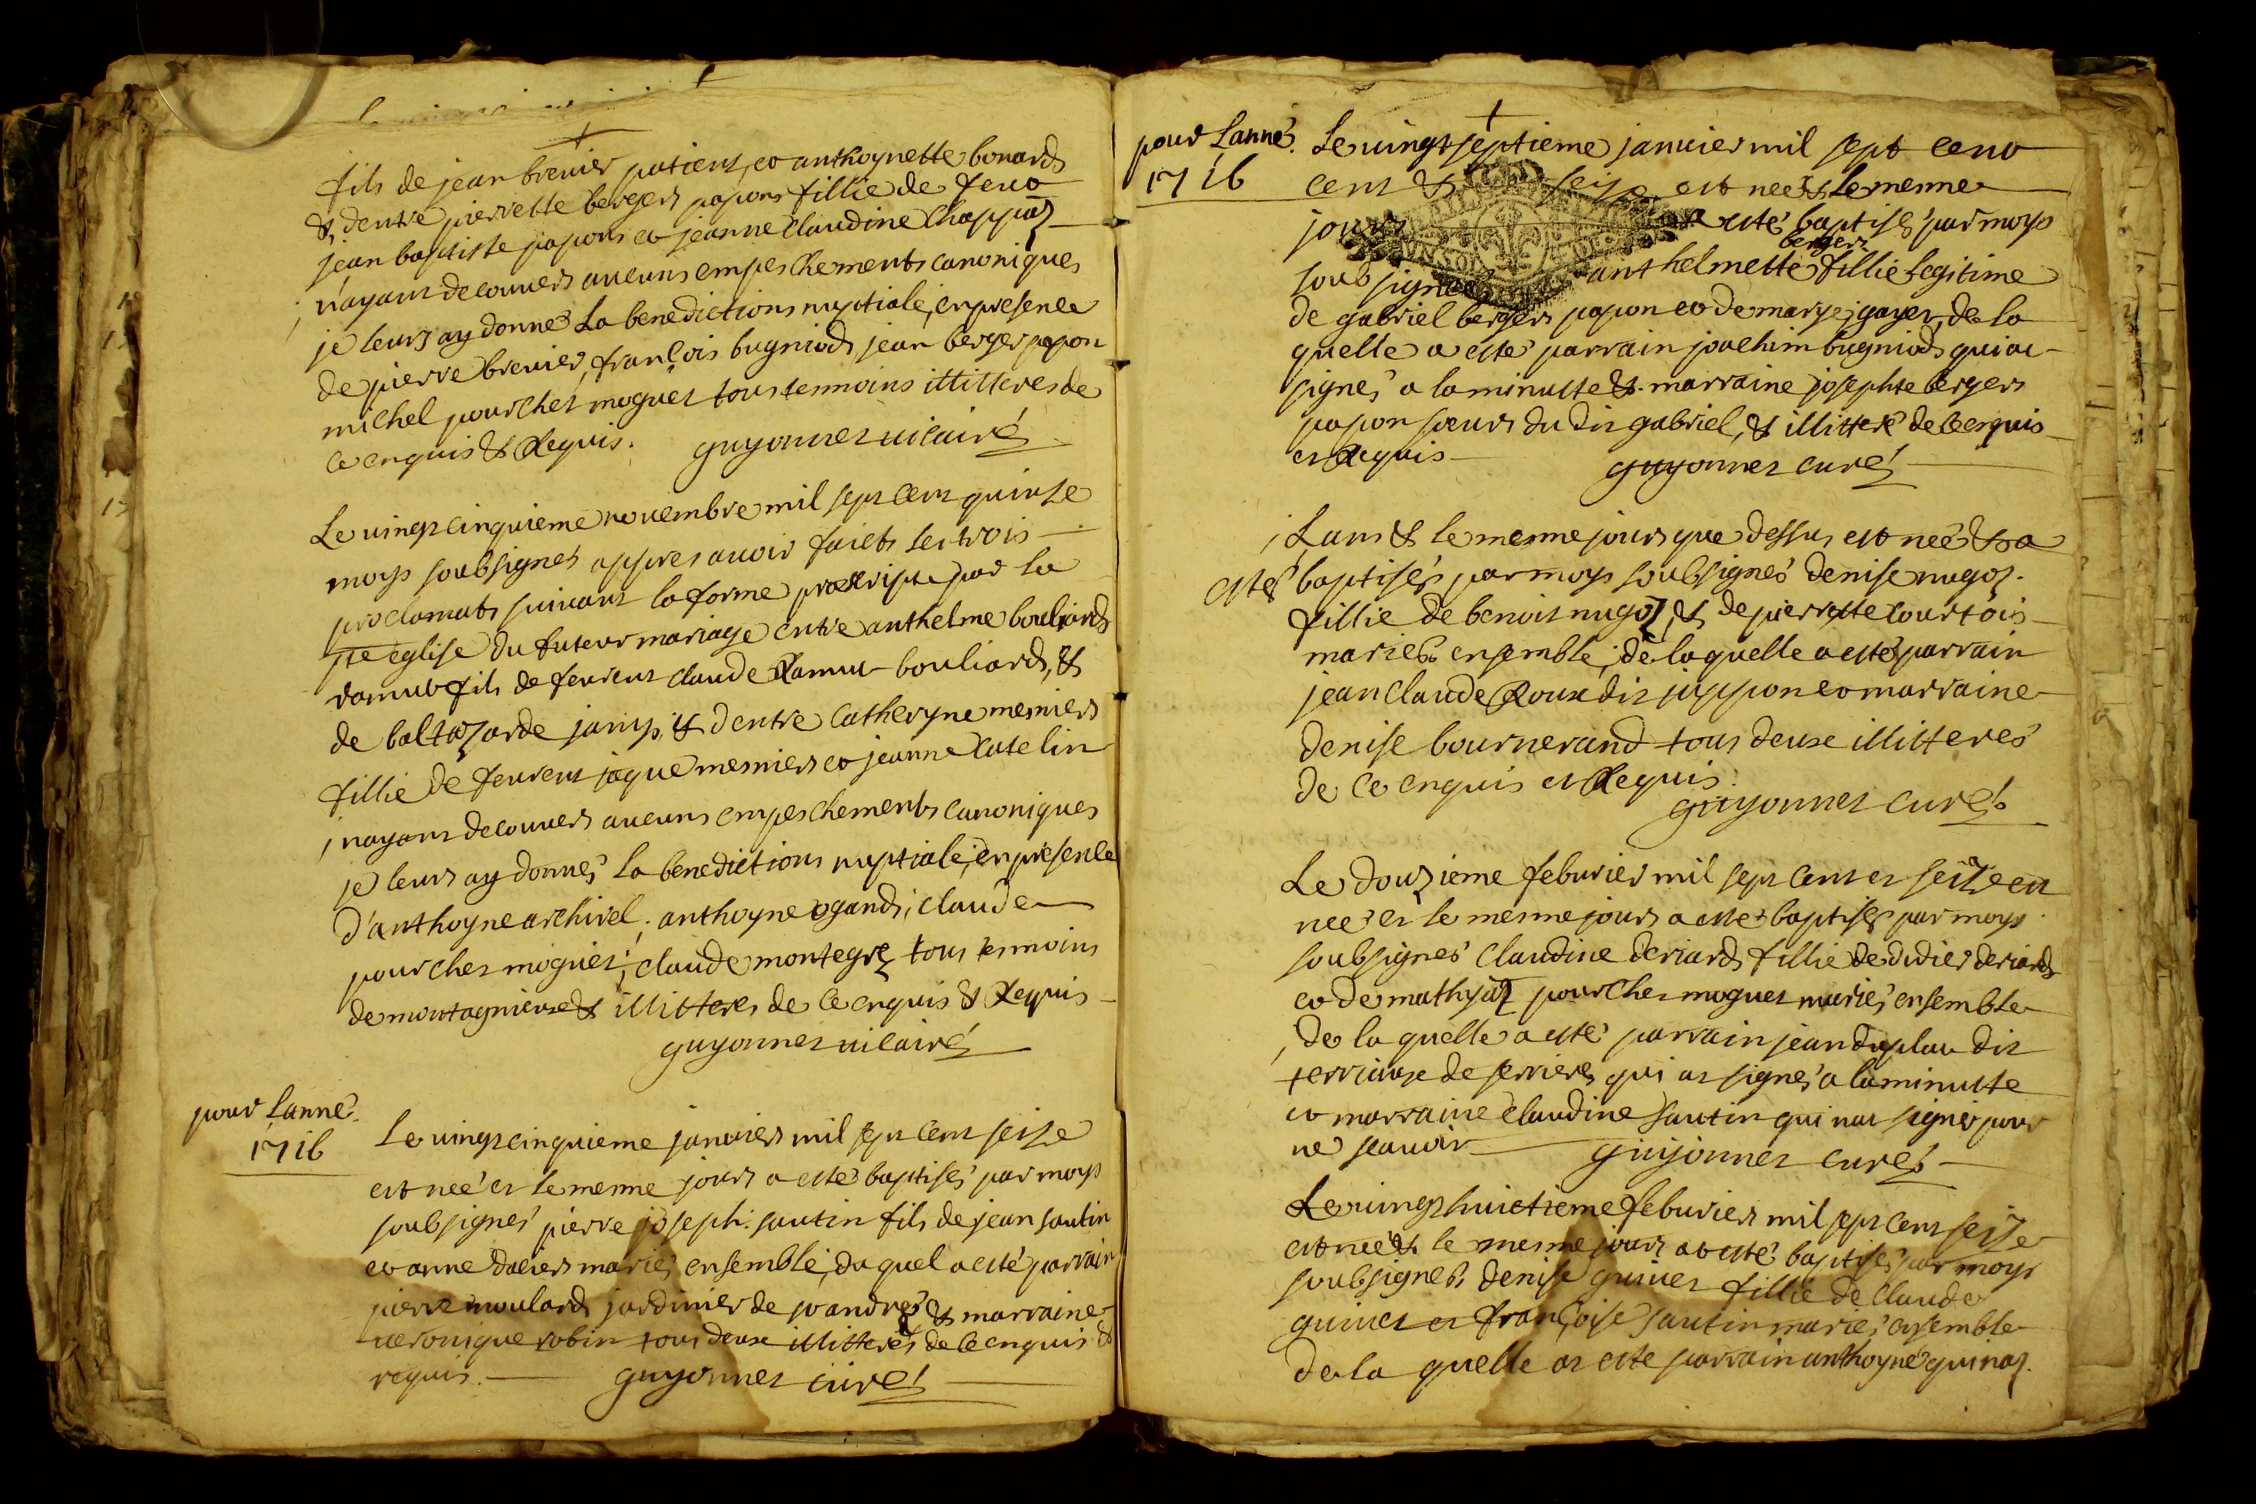 fils de jean brenier patient, et anthoynette bonard
& dentre pierrette berger papon fillie de feu
jean baptiste papon et jeanne claudine Chappaz
n'ayant decouverd aucuns empeschements canoniques
je leurs ay donnés La benedictions nuptiale, en presence
de pierre brenier, françois bugniod, jean berger papon
michel pourchet moguet tous temoins illitteres de
ce enquis & Requis. guyonnet vicairé
Le vingt cinquieme novembre mil sept cent quinse
moy soubsignés appres avoir faicts les trois
proclamats suivant la forme prescripte par la
ste eglise du futeur mariage entre anthelme bouliard
ramut fils de feu claude Ramut bouliard, &
de baltazarde janin, & dentre catheryne mesnier
fillie de feu jaque mesnier et jeanne catelin
nayant decouverd aucuns empeschements canoniques
je leurs ay donnés la benedictions nuptiale, en presence
d'anthoyne archirel, anthoyne ogand, claude
pourchet moguet, claude montegre tous temoins
de montagnieux & illitteres de ce enquis & Requis
guyonnet vicairé
pour Lanné
1716
Le vingt cinquieme janvier mil sept cent seise
est neé et le mesme jours a esté baptisés par moy
soubsignés pierre joseph sautin fils de jean sautin
et anne daliers mariés ensemble, du quel a esté parrain
pierre moulard jardinier de & marraine
veronique robin tous deux illitterés de ce enquis &
requis. guyonnet curé
pour Lanné.
1716
Le vingt septieme janvier mil sept cent
cent & seise est neé & le mesme
jours a esté baptisé par moy
berger
soubsignés anthelmette fillie legitime
de gabriel berger papon et de marye gayet, de la
quelle a esté parrain joachim bugniod qui at
signés a la minutte & marraine josephte berger
papon soeur du dit gabriel, & illitteré de ce enquis
et Requis guyonnet curé
Lans & le mesme jours que dessus est neé & a
estés baptisés par moy soubsignés denise nugoz
fillie de benoit nugoz, & de pierrette courtois
mariés ensemble, de laquelle a estés parrain
jean claude Roux dit juppon et marraine
denise bournerand tous deux illitterés
de ce enquis et Requis.
guyonnet curé
Le douzieme feburier mil sept cent et seize est
neé et le mesme jours a esté baptisés par moy
soubsignés claudine deriard fillie de didier deriard
et de mathyaz pourchet moguet mariés ensemble
de la quelle a esté parrain jean duplau dit
de serrieres qui at signés a la minutte
et marraine claudine sautin qui nat signés pour
ne scavoir guyonnet curé
Le vingt huictieme feburier mil sept cent seize
est neé & le mesme jour at esté baptisés par moy
soubsignés denise guinet fillie de claude
guinet et françoise sautin mariés ensemble
de la quelle at esté parrain anthoyne guinaz